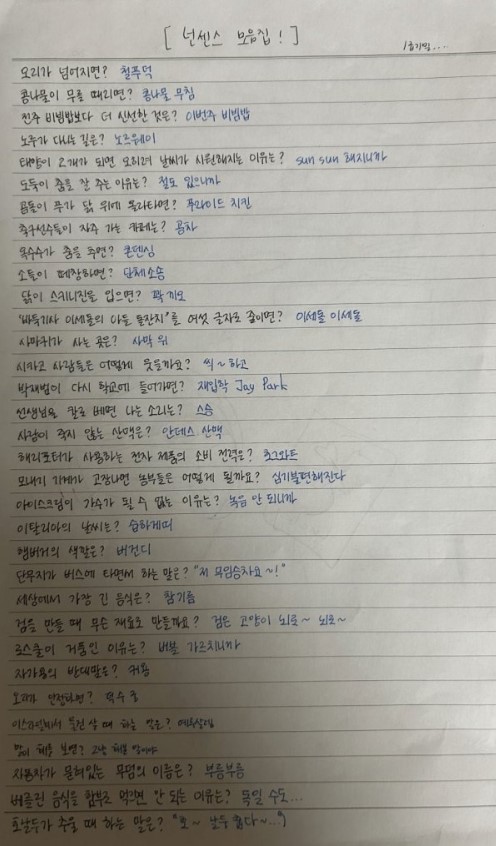 [ 넌센스 모음집! ]
오리가 넘어지면? 철푸덕
콩나물이 무를 때리면? 콩나물 무침
전주 비빔밥보다 더 신선한 것은? 이번주 비빔밥
노루가 다니는 길은? 노르웨이
태양이 2개가 되면 오히려 날씨가 시원해지는 이유는? sun sun 해지니까
도둑이 춤을 잘 추는 이유는? 절도 있으니까
곰돌이 푸가 닭 위에 올라타면? 푸라이드 치킨
축구선수들이 자주 가는 카페는? 공차
옥수수가 춤을 추면? 콘댄싱
소들이 떼창하면? 단체소송
닭이 스키니진을 입으면? 꽉 끼오
'바둑기사 이세돌의 아들 돌잔치'를 여섯 글자로 줄이면? 이세돌 이세돌
사마귀가 사는 곳은? 사막 위
시카고 사람들은 어떻게 웃을까요? 씩~ 하고
박재범이 다시 학교에 들어가면? 재입학 Jay Park
선생님을 칼로 베면 나는 소리는? 스승
사람이 죽지 않는 산맥은? 안데스 산맥
해리포터가 사용하는 전자 제품의 소비 전력은? 호그와트
모내기 기계가 고장나면 농부들은 어떻게 될까요? 심기불편해진다
아이스크림이 가수가 될 수 없는 이유는? 녹음 안 되니까
이탈리아의 날씨는? 습하게띠
햄버거의 색깔은? 버건디
단무지가 버스에 타면서 하는 말은? "저 무임승차요~!"
세상에서 가장 긴 음식은? 참기름
검을 만들 때 무슨 재료로 만들까요? 검은 고양이 뇌로~ 뇌로~
로스쿨이 거품인 이유는? 버블 가르치니까
자가용의 반대말은? 커용
오리가 얼면? 덕수 궁
이스라엘에서 물건 살 때 하는 말은? 예루살렘
자동차가 묻혀있는 무덤의 이름은? 부릉부릉
버려진 음식을 함부로 먹으면 안 되는 이유는? 독일 수도...
호날두가 추울 때 하는 말은? "호~ 날두 춥다~..."